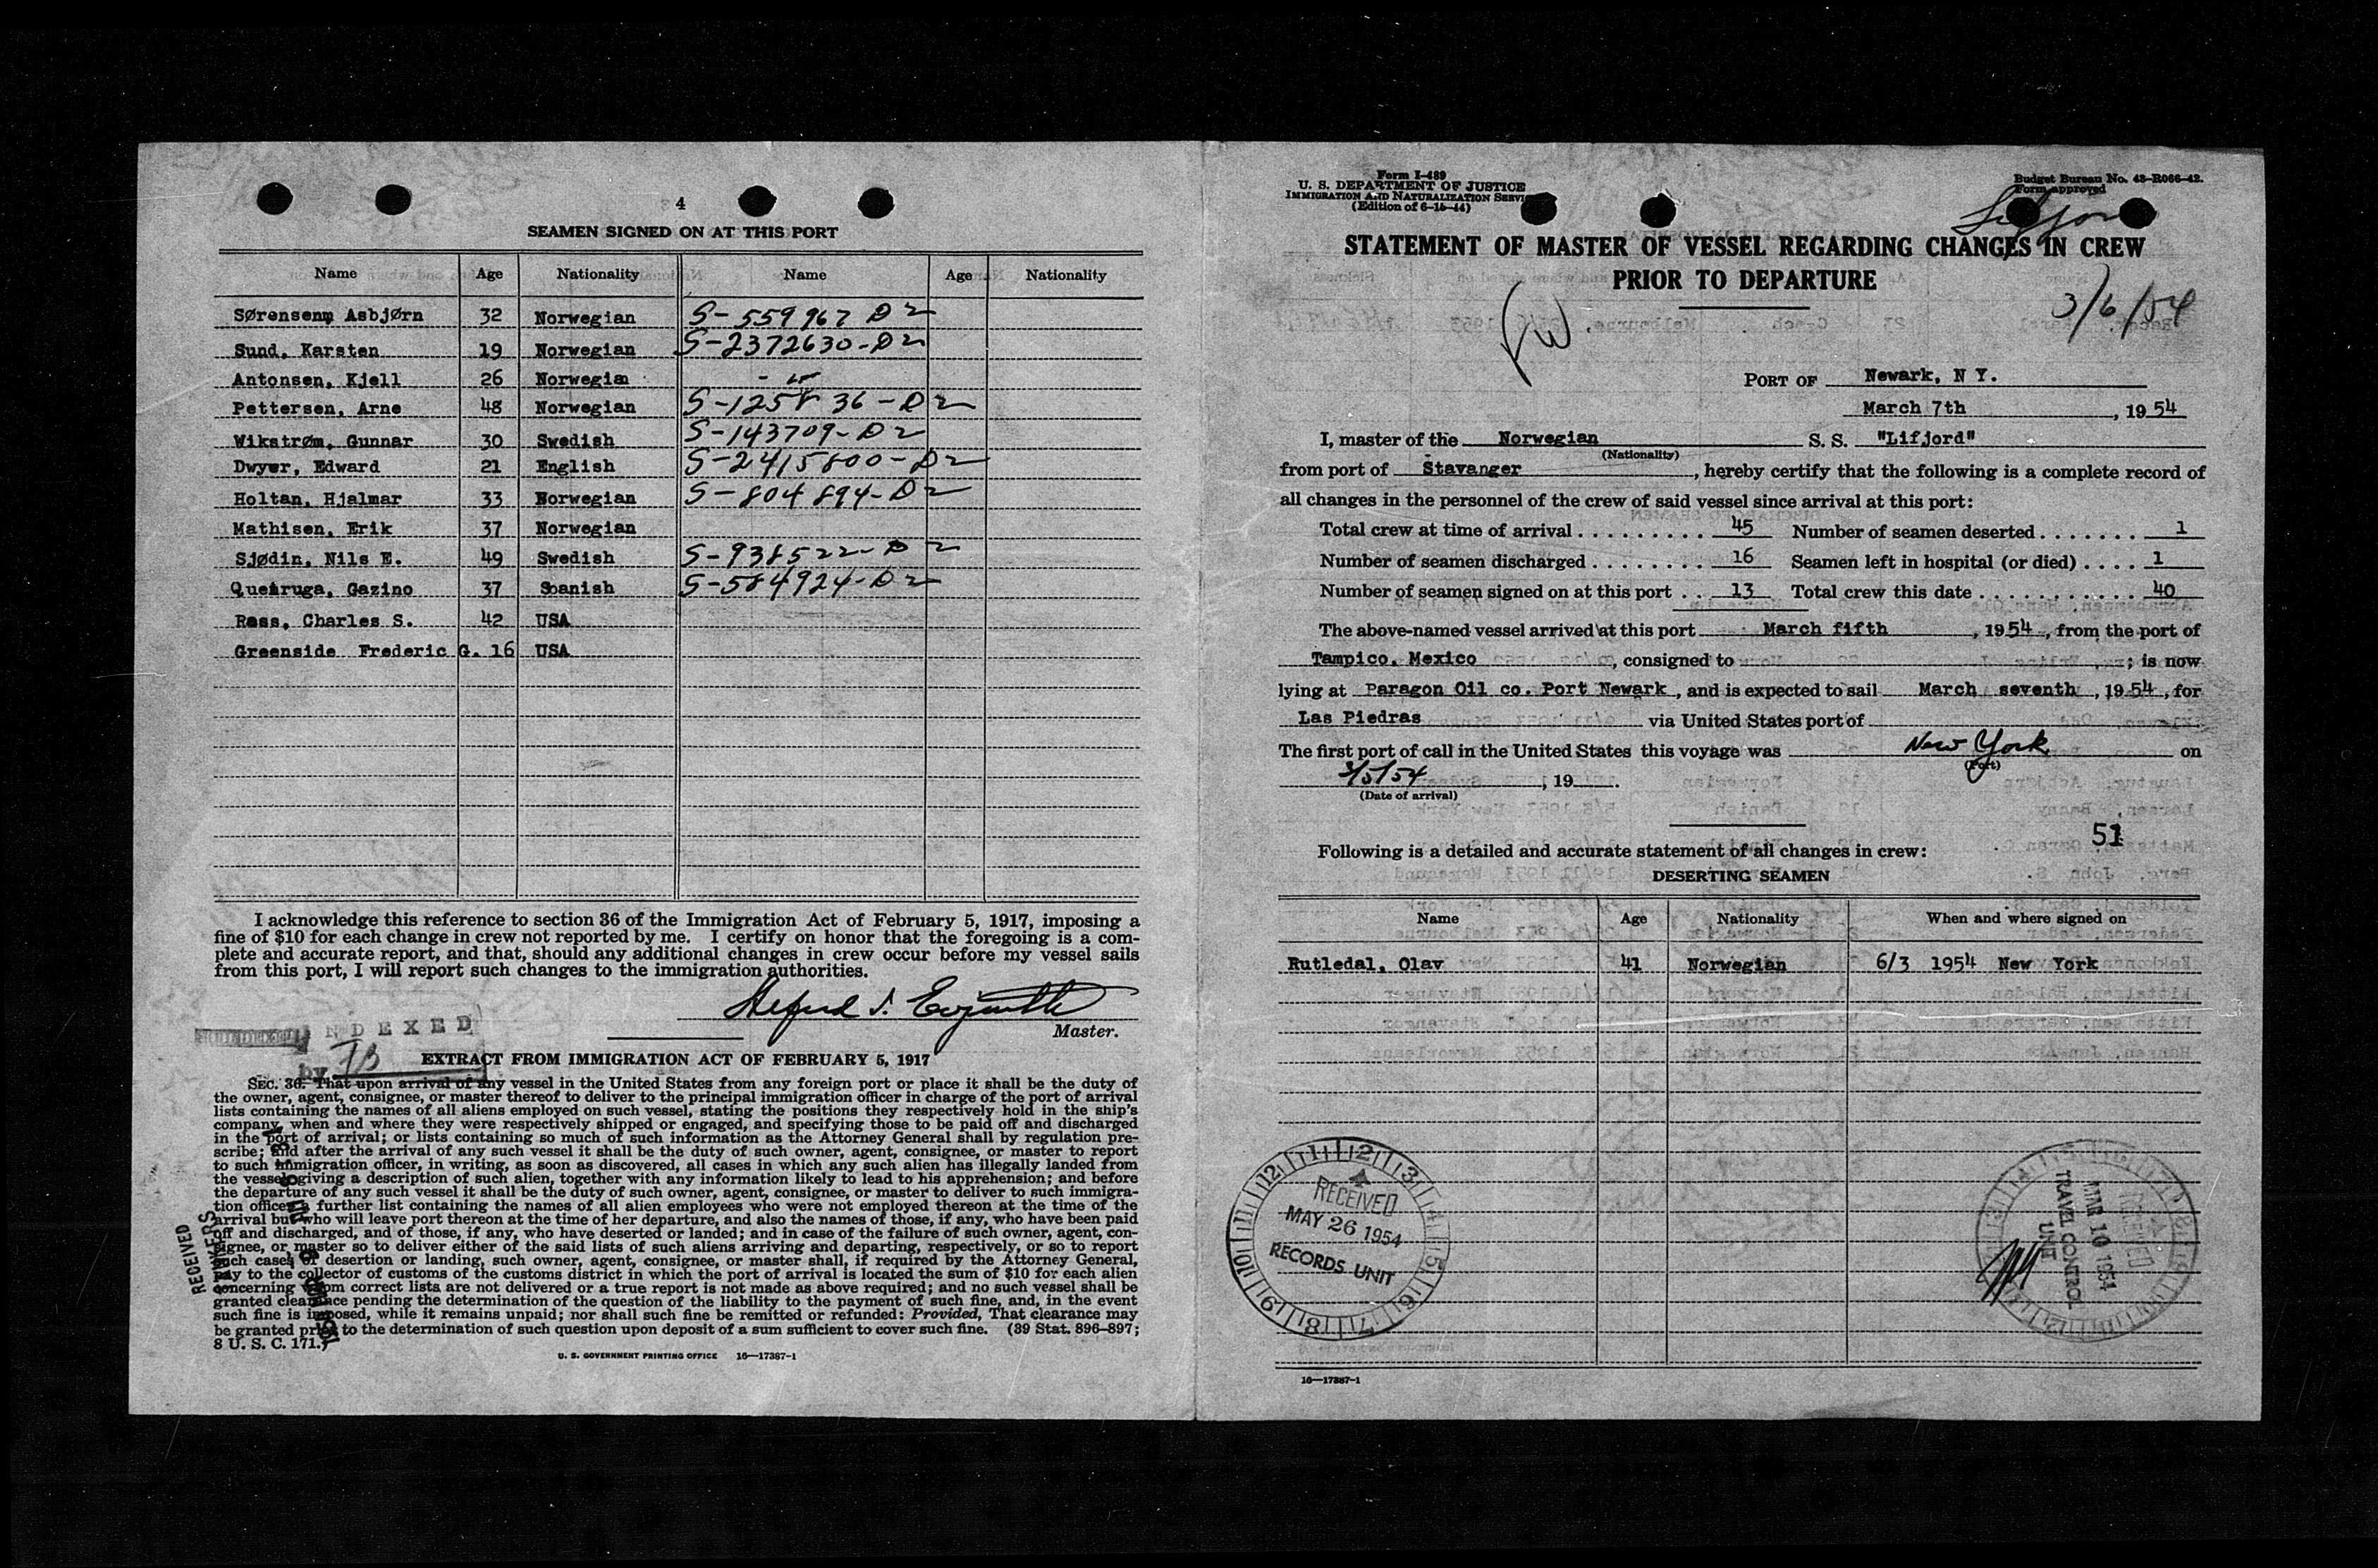 4
SEAMEN SIGNED ON AT THIS PORT
Name Age Nationality Name Age Nationality
Sørensenm Asbjørn 32 Norwegian S-559967 D2
Sund, Karsten 19 Norwegian S-2372630-D2
Antonsen, Kjell 26 Norwegian
Pettersen, Arne 48 Norwegian S-125836-D2
Wikstrøm, Gunnar 30 Swedish S-143709-D2
Dwyer, Edward 21 English S-2415800-D2
Holtan, Hjalmar 33 Norwegian S-804894-D2
Mathisen, Erik 37 Norwegian
Sjødin, Nils E. 49 Swedish S-938522-D2
Queiruga, Gazino 37 Spanish S-584924-D2
Ross, Charles S. 42 USA
Greenside Frederic G. 16 USA
I acknowledge this reference to section 36 of the Immigration Act of February 5, 1917, imposing a
fine of $10 for each change in crew not reported by me. I certify on honor that the foregoing is a com-
plete and accurate report, and that, should any additional changes in crew occur before my vessel sails
from this port, I will report such changes to the immigration authorities.
Master.
INDEXED
by
EXTRACT FROM IMMIGRATION ACT OF FEBRUARY 5, 1917
SEC. 36. That upon arrival of any vessel in the United States from any foreign port or place it shall be the duty of
the owner, agent, consignee, or master thereof to deliver to the principal immigration officer in charge of the port of arrival
lists containing the names of all aliens employed on such vessel, stating the positions they respectively hold in the ship's
company, when and where they were respectively shipped or engaged, and specifying those to be paid off and discharged
in the port of arrival; or lists containing so much of such information as the Attorney General shall by regulation pre-
scribe; and after the arrival of any such vessel it shall be the duty of such owner, agent, consignee, or master to report
to such immigration officer, in writing, as soon as discovered, all cases in which any such alien has illegally landed from
the vessel, giving a description of such alien, together with any information likely to lead to his apprehension; and before
the departure of any such vessel it shall be the duty of such owner, agent, consignee, or master to deliver to such immigra-
tion officer a further list containing the names of all alien employees who were not employed thereon at the time of the
arrival but who will leave port thereon at the time of her departure, and also the names of those, if any, who have been paid
off and discharged, and of those, if any, who have deserted or landed; and in case of the failure of such owner, agent, con-
signee, or master so to deliver either of the said lists of such aliens arriving and departing, respectively, or so to report
such cases of desertion or landing, such owner, agent, consignee, or master shall, if required by the Attorney General,
pay to the collector of customs of the customs district in which the port of arrival is located the sum of $10 for each alien
concerning whom correct lists are not delivered or a true report is not made as above required; and no such vessel shall be
granted clearance pending the determination of the question of the liability to the payment of such fine, and, in the event
such fine is imposed, while it remains unpaid; nor shall such fine be remitted or refunded: Provided, That clearance may
be granted prior to the determination of such question upon deposit of a sum sufficient to cover such fine. (39 Stat. 896-897;
8 U. S. C. 171.)
RECEIVED
U. S. GOVERNMENT PRINTING OFFICE 16—17387-1
Form I-489
U. S. DEPARTMENT OF JUSTICE
IMMIGRATION AND NATURALIZATION SERVICE
(Edition of 6-15-44)
Budget Bureau No. 43-R066-42.
Form approved
Lifjord
STATEMENT OF MASTER OF VESSEL REGARDING CHANGES IN CREW
PRIOR TO DEPARTURE
3/6/54
PORT OF Newark, N Y.
March 7th, 1954
I, master of the Norwegian S. S. "Lifjord"
(Nationality)
from port of Stavanger, hereby certify that the following is a complete record of
all changes in the personnel of the crew of said vessel since arrival at this port:
Total crew at time of arrival 45 Number of seamen deserted 1
Number of seamen discharged 16 Seamen left in hospital (or died) 1
Number of seamen signed on at this port 13 Total crew this date 40
The above-named vessel arrived at this port March fifth, 1954, from the port of
Tampico, Mexico, consigned to ; is now
lying at Paragon Oil co. Port Newark, and is expected to sail March seventh, 1954, for
Las Piedras via United States port of
The first port of call in the United States this voyage was New York on
(Port)
3/5/54, 19 .
(Date of arrival)
51
Following is a detailed and accurate statement of all changes in crew:
DESERTING SEAMEN
Name Age Nationality When and where signed on
Rutledal, Olav 41 Norwegian 6/3 1954 New York
RECEIVED
MAY 26 1954
RECORDS UNIT
RECEIVED
MAR 10 1954
TRAVEL CONTROL
UNIT
16—17387-1